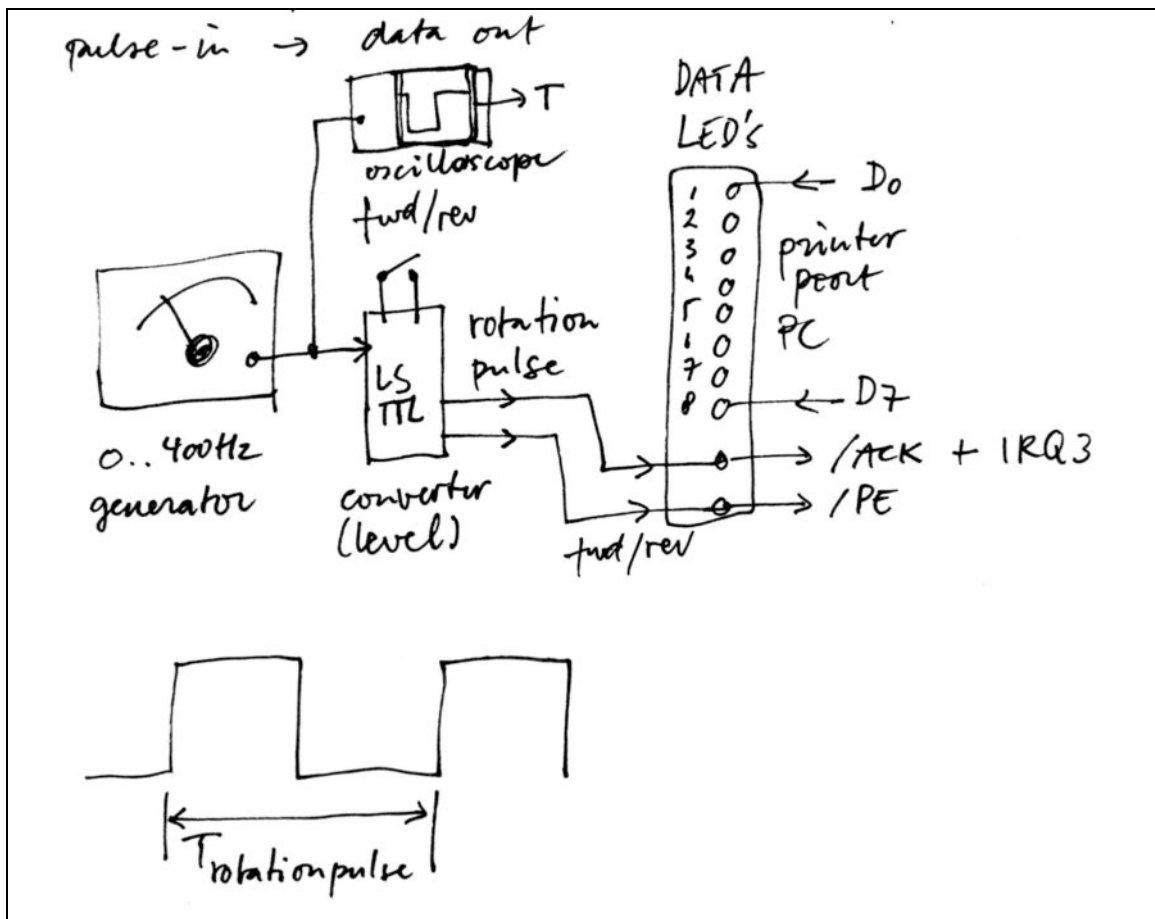 pulse-in → data out
T
oscilloscope
fwd/rev
DATA
LED's
1
2
3
4
5
6
7
8
D0
printer
port
PC
D7
rotation
pulse
LS
TTL
0..400Hz
generator
converter
(level)
fwd/rev
/ACK + IRQ3
/PE
Trotationpulse